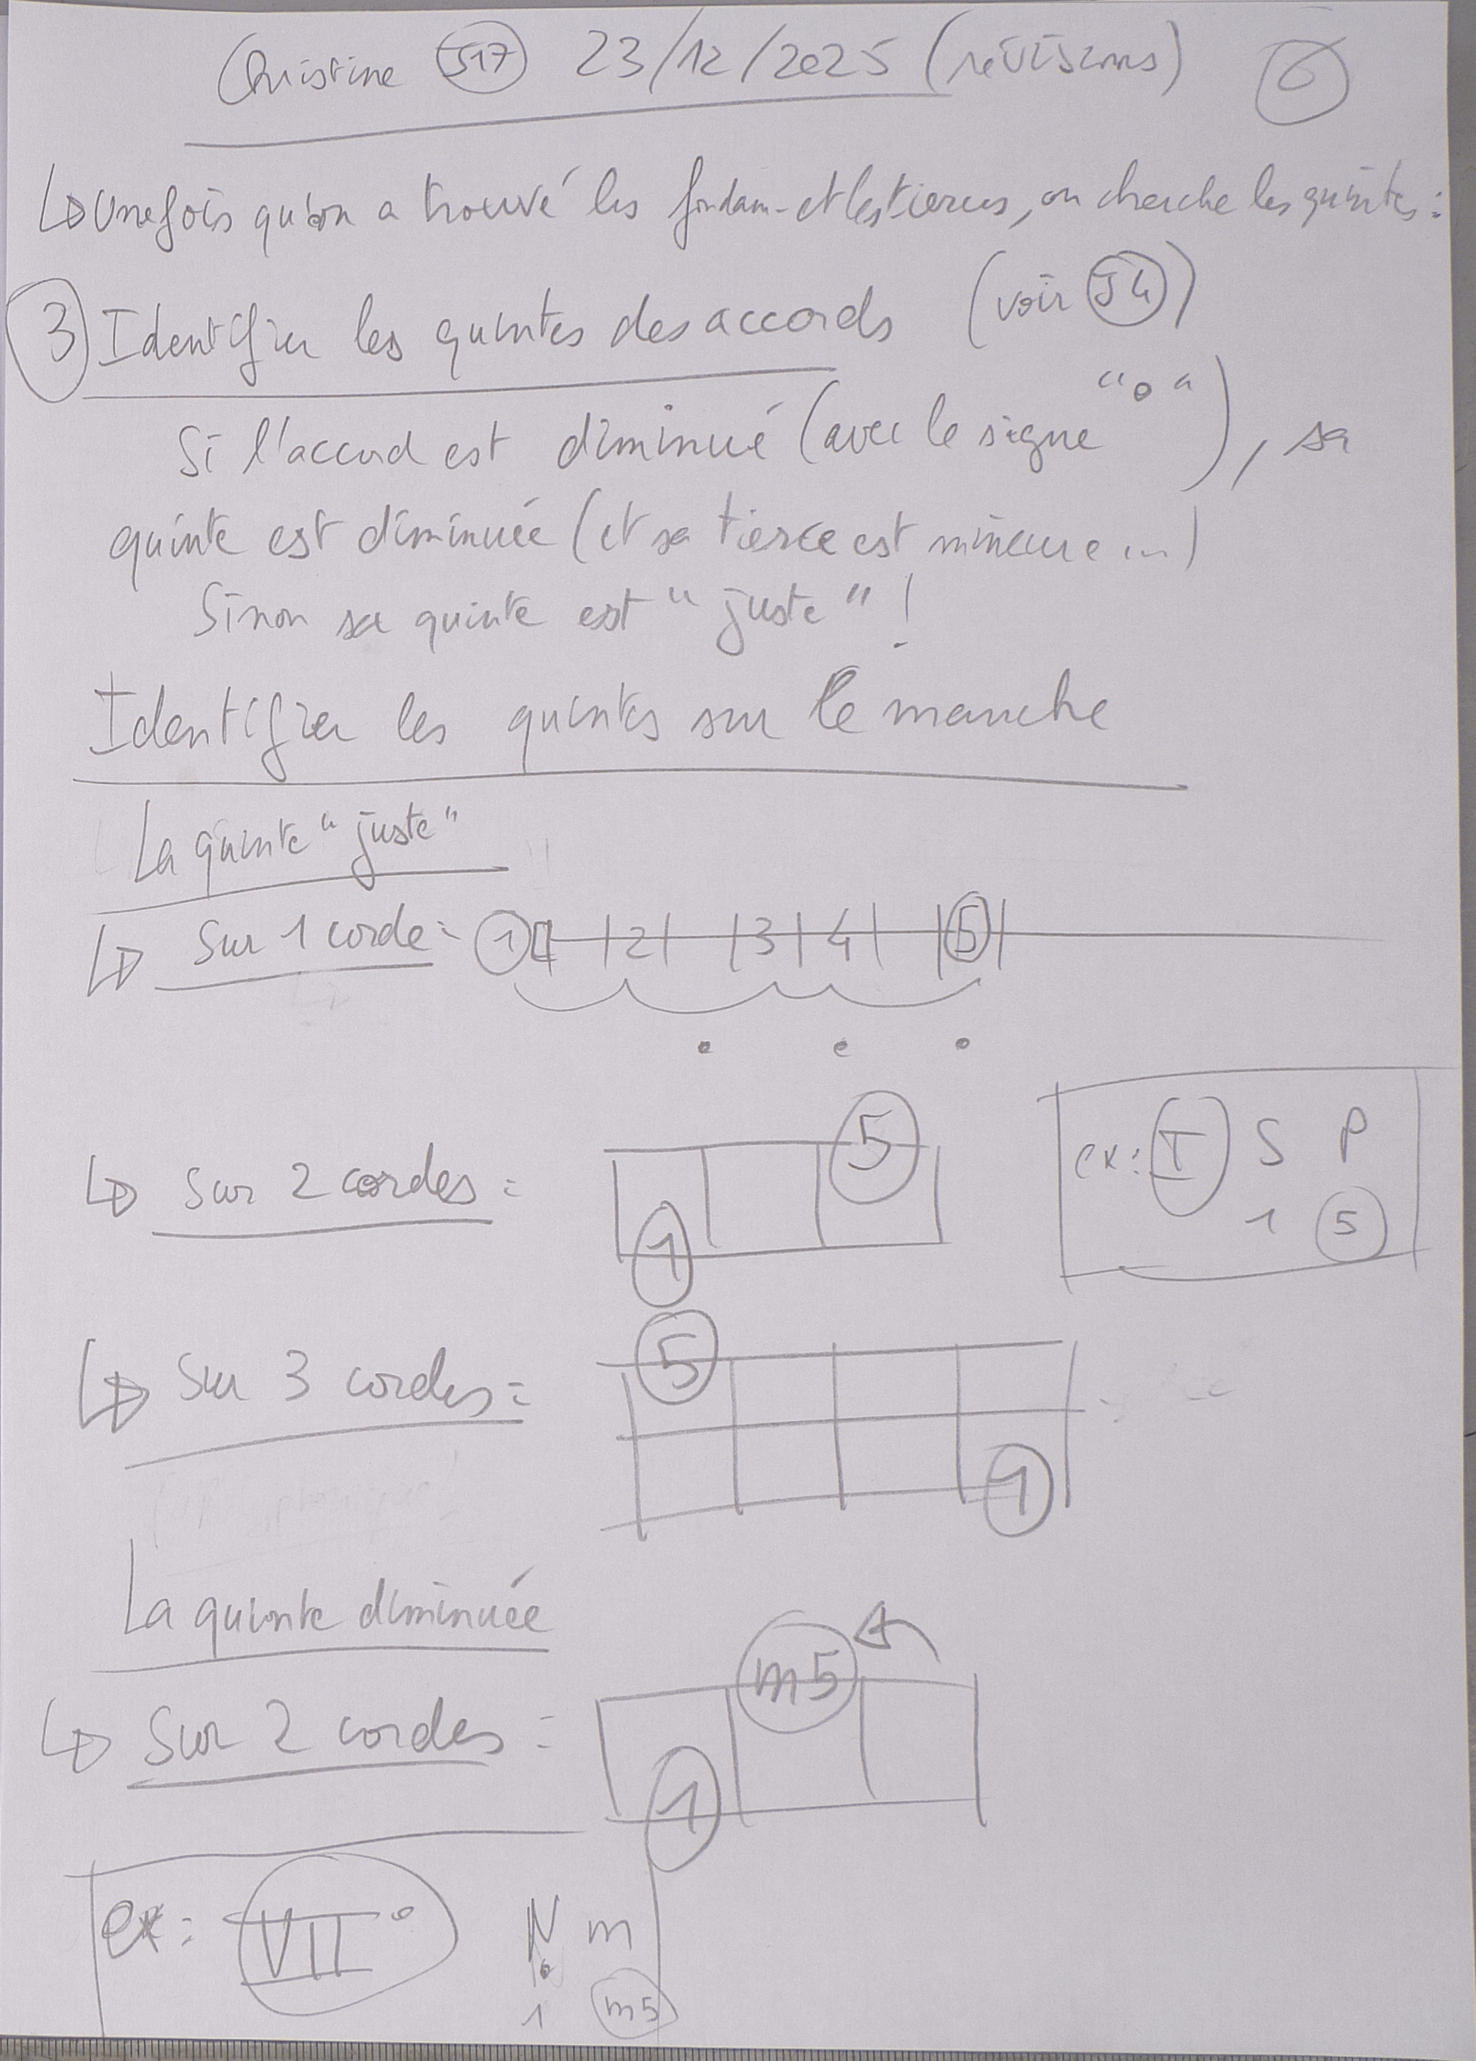 Christine J17 23/12/2025 (révisions) 6
↳ Une fois qu'on a trouvé les fondam. et les tierces, on cherche les quintes :
3 Identifier les quintes des accords (voir J4)
Si l'accord est diminué (avec le signe "o"), sa
quinte est diminuée (et sa tierce est mineure ...)
Sinon sa quinte est "juste" !
Identifier les quintes sur le manche
La quinte "juste"
↳ Sur 1 corde : 1 2 3 4 5
↳ Sur 2 cordes :
5
1
ex : I S P
1 5
↳ Sur 3 cordes :
5
1
La quinte diminuée
↳ Sur 2 cordes :
m5
1
ex : VII° N m
1 m5